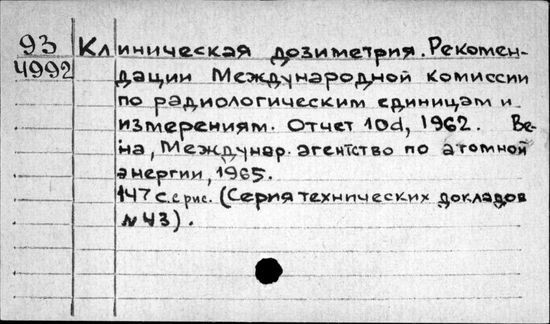 93
4992
Клиническая дозиметрия. Рекомен-
дации Международной комиссии
по радиологическим единицам и
измерениям. Отчет 10d, 1962. Ве-
на, Междунар. агентство по атомной
энергии, 1965.
147 с. с рис. (Серия технических докладов
№43).